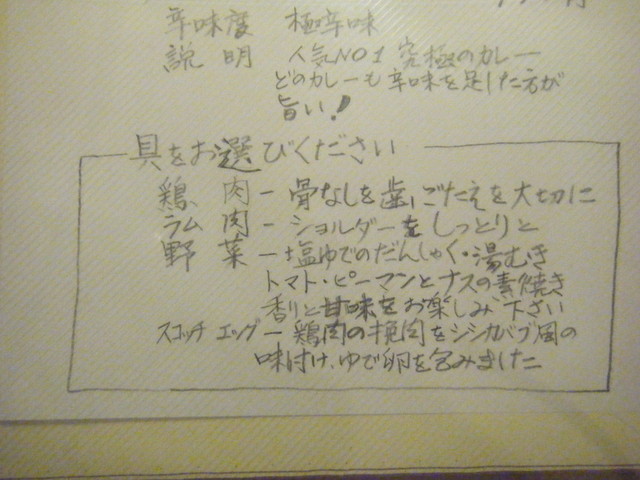 辛味度 極辛味
説明 人気NO1 究極のカレー
どのカレーも辛味を足した方が
旨い!
具をお選びください
鶏肉ー骨なしを歯ごたえを大切に
ラム肉ーショルダーをしっとりと
野菜ー塩ゆでのだんしゃく・湯むき
トマト・ピーマンとナスの素焼き
香りと甘味をお楽しみ下さい
スコッチエッグー鶏肉の挽肉をシシカバブ風の
味付け、ゆで卵を包みました